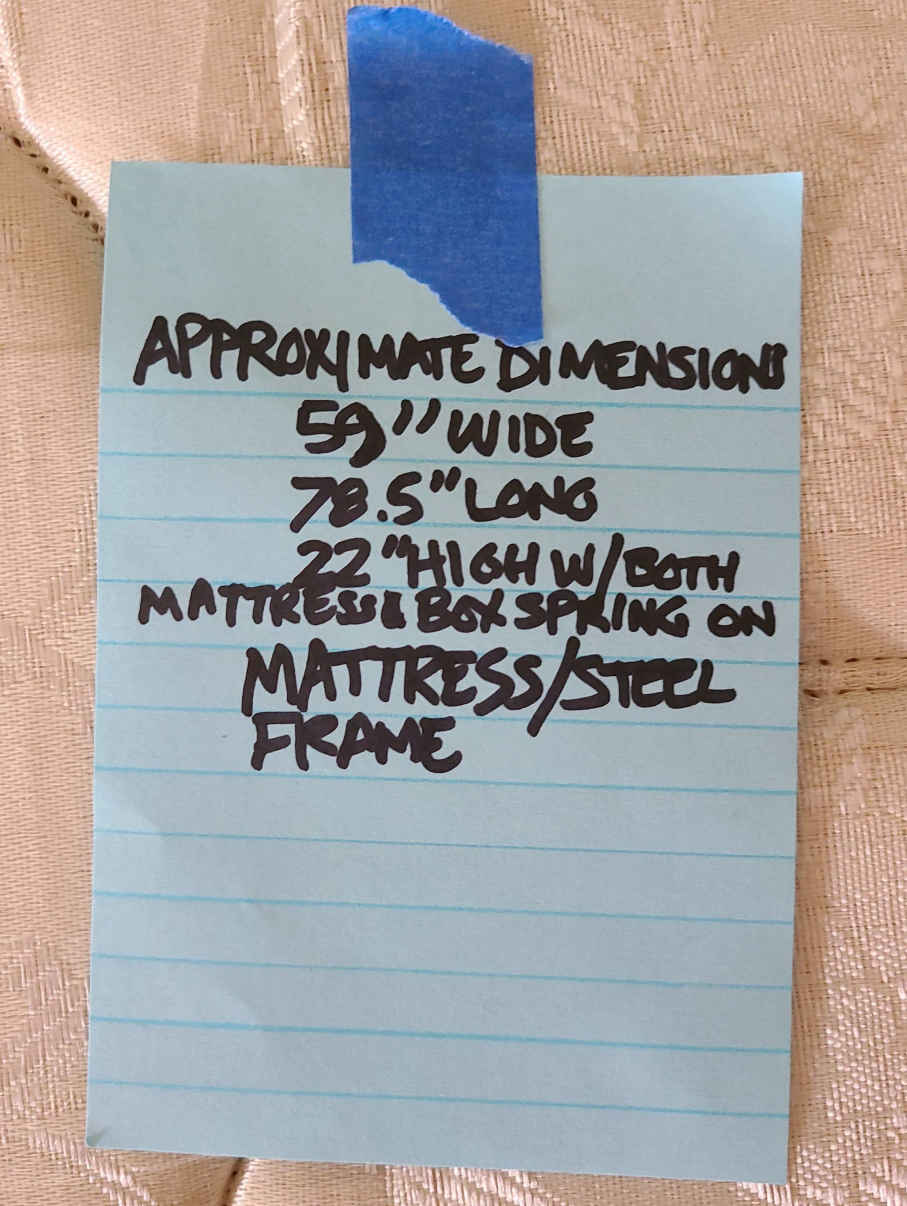 APPROXIMATE DIMENSIONS
59" WIDE
78.5" LONG
22" HIGH W/BOTH
MATTRESS & BOX SPRING ON
MATTRESS/STEEL
FRAME